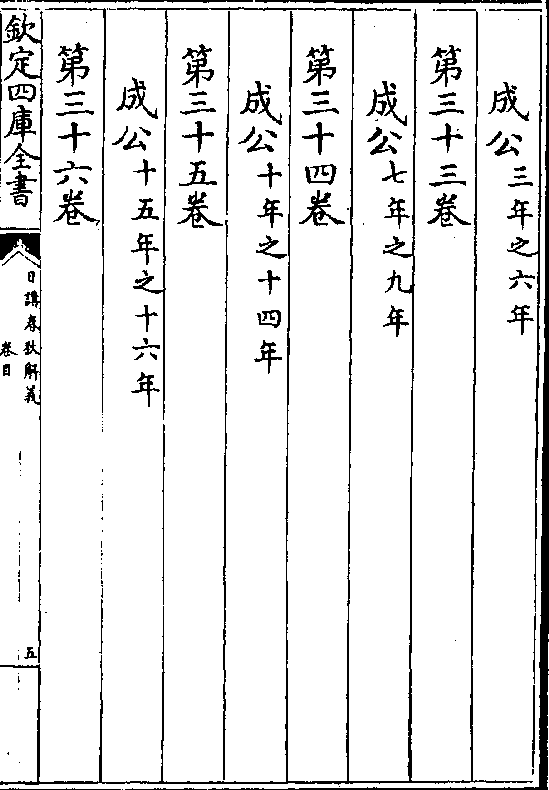 成公三年之六年
第三十三卷
成公七年之九年
第三十四卷
成公十年之十四年
第三十五卷
成公十五年之十六年
第三十六卷
欽定四庫全書
日講春秋解義
卷目
五